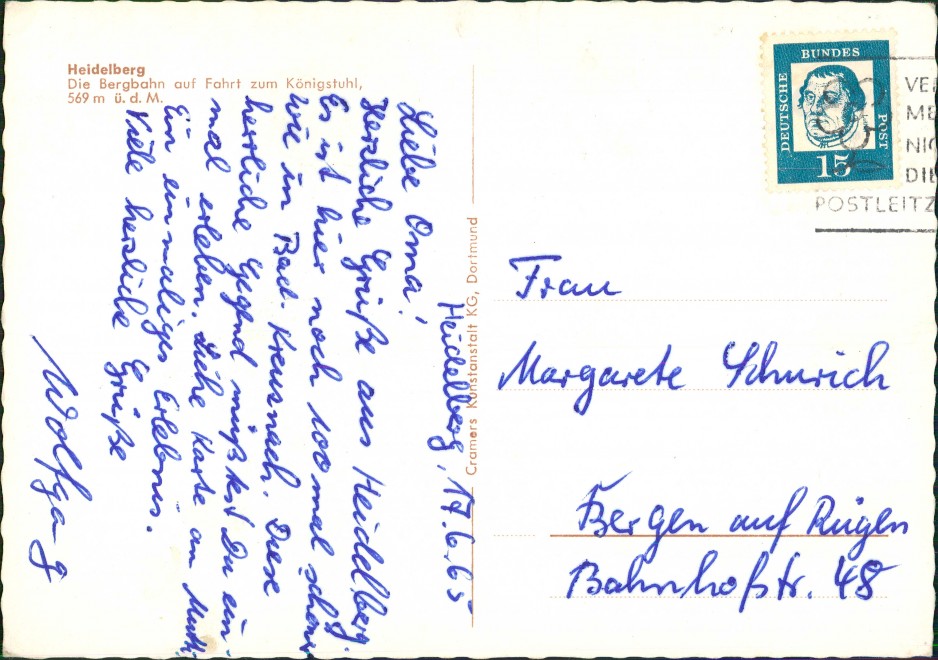 Heidelberg
Die Bergbahn auf Fahrt zum Königstuhl,
569 m ü. d. M.
Heidelberg, 17.6.65
Liebe Oma!
Herzliche Grüße aus Heidelberg.
Es ist hier noch 100 mal schöner
wie in Bad-Kreusnach. Diese
herrliche Gegend müßtest Du ein-
mal erleben. Siehe Karte an Mutti.
Ein einmaliges Erlebnis.
Viele herzliche Grüße
Wolfgang
Cramers Kunstanstalt KG, Dortmund
DEUTSCHE
BUNDES
POST
15
VE
ME
NIC
DIE
POSTLEITZ
Frau
Margarete Schurich
Bergen auf Rügen
Bahnhofstr. 48